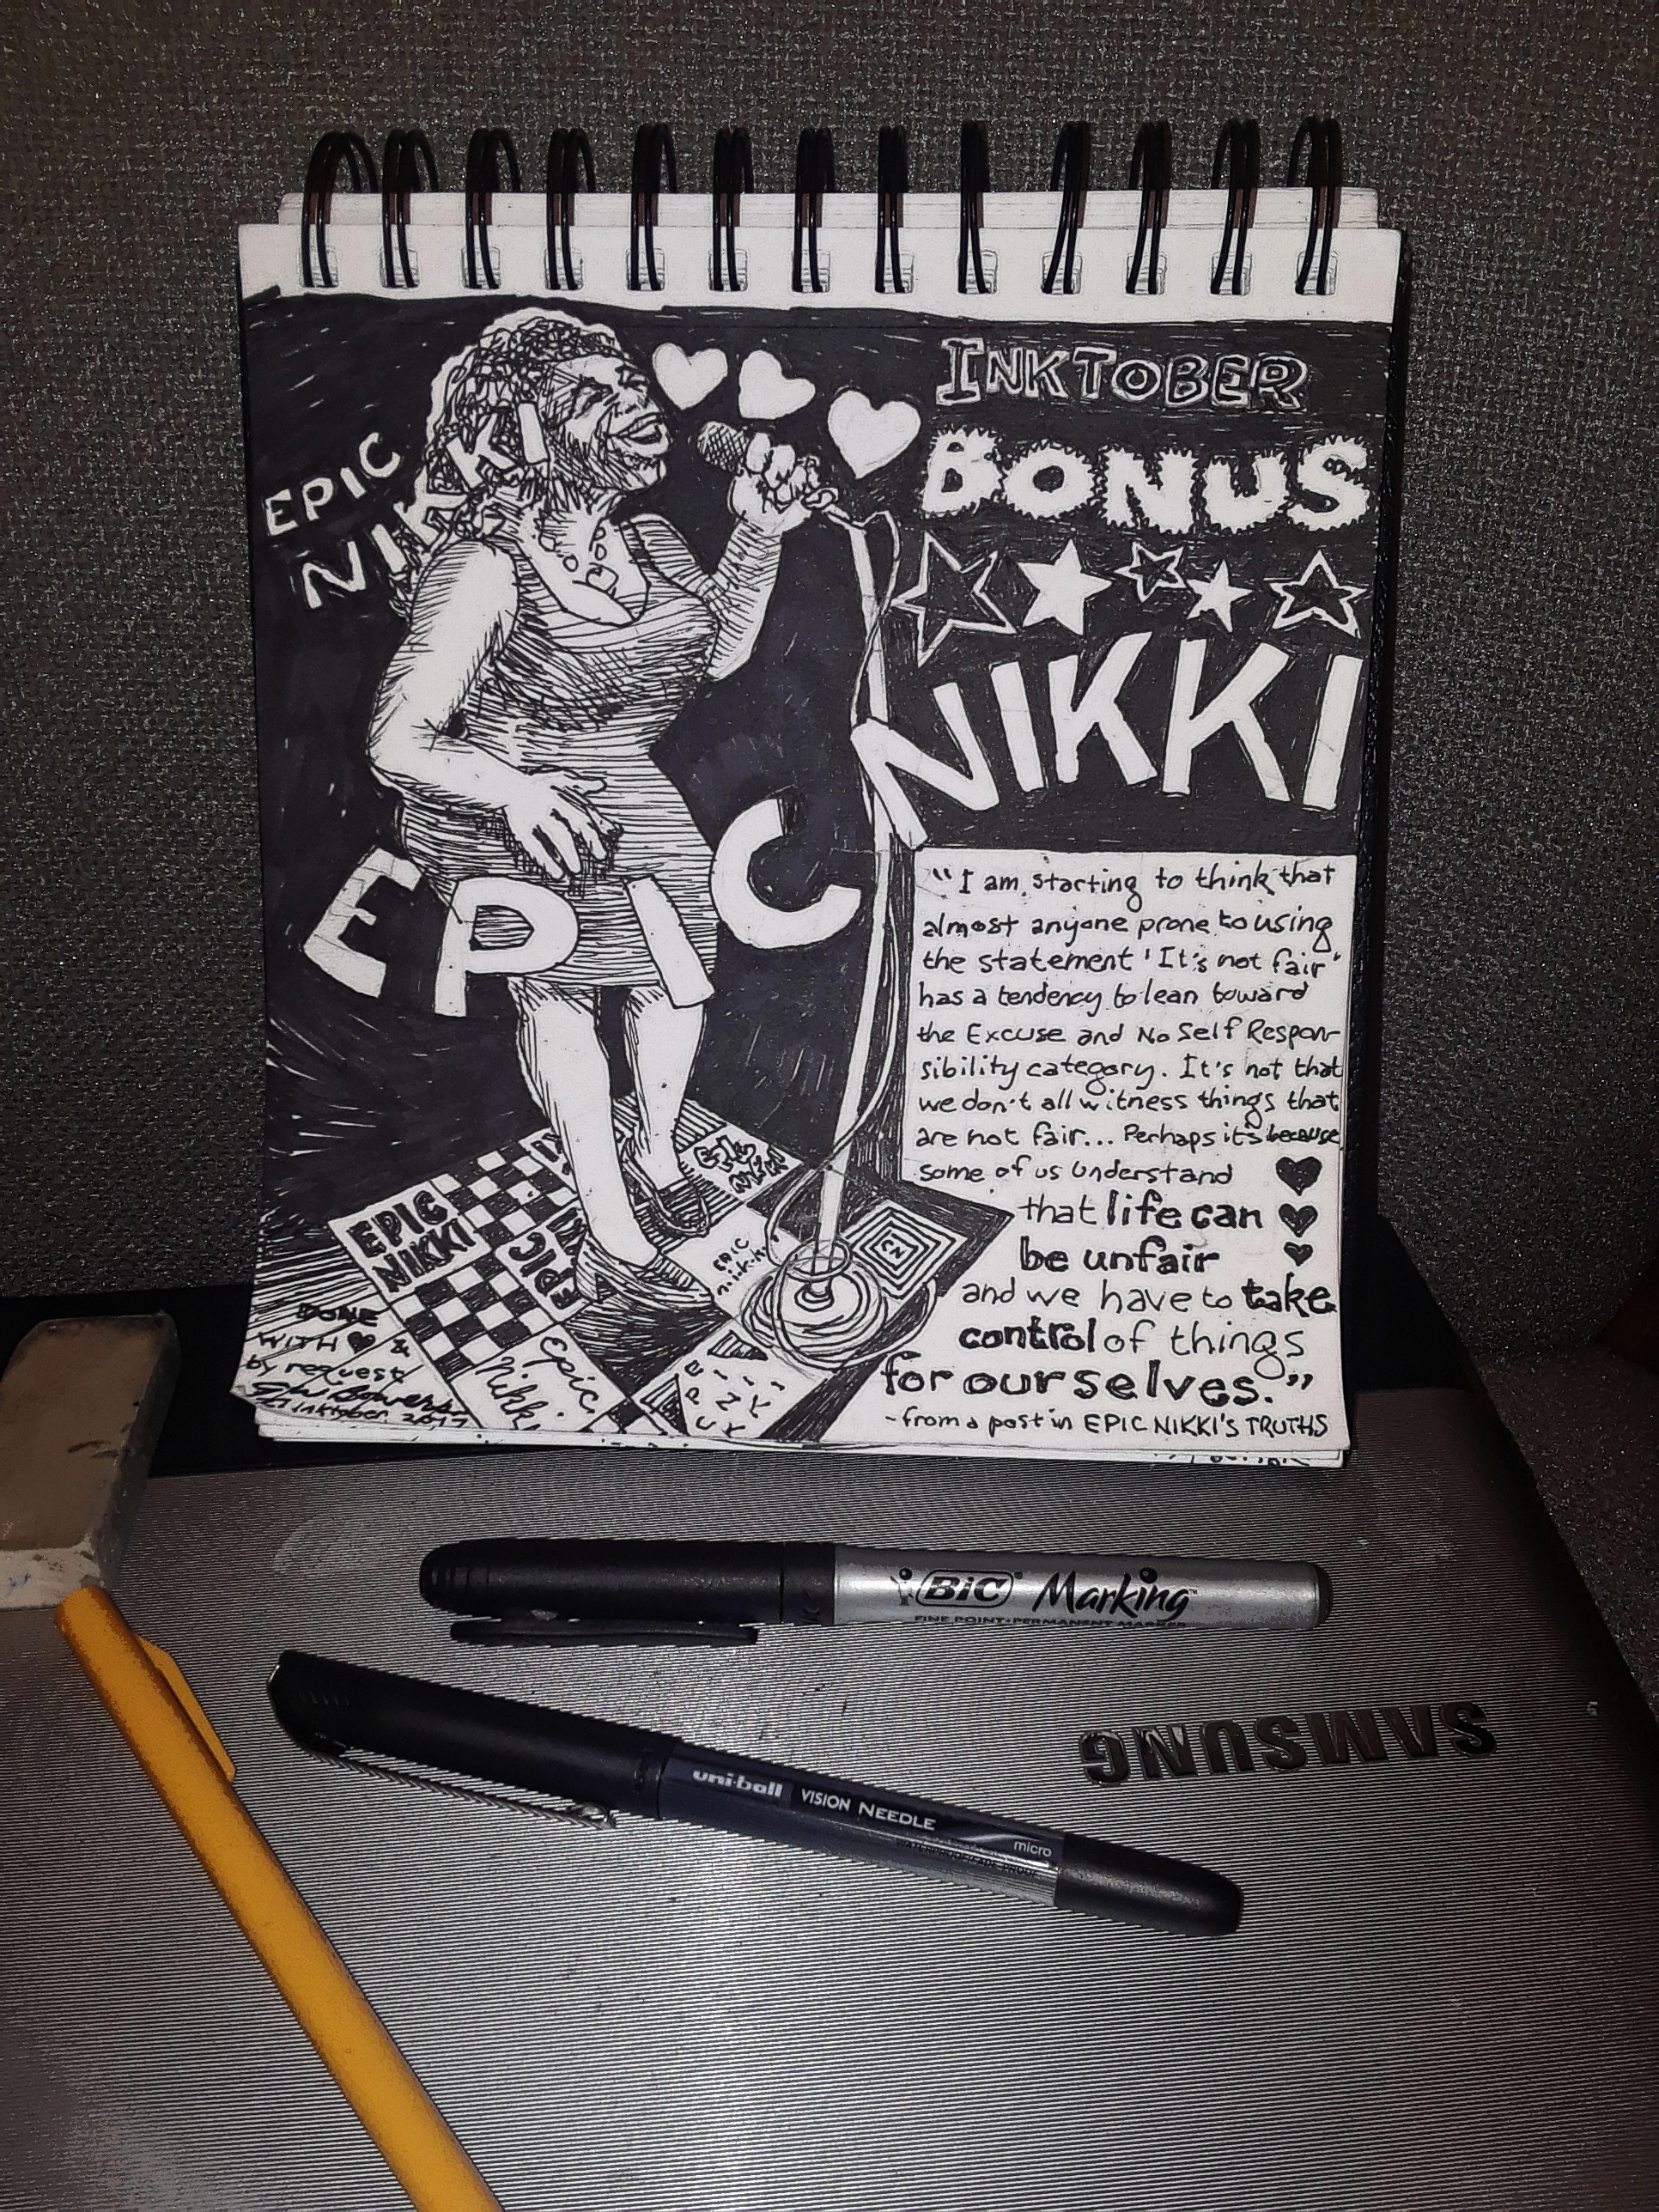 INKTOBER
BONUS
EPIC
NIKKI
EPIC
NIKKI
"I am starting to think that
almost anyone prone to using
the statement 'It's not fair'
has a tendency to lean toward
the Excuse and No Self Respon-
sibility category. It's not that
we don't all witness things that
are not fair... Perhaps it's because
some of us understand
that life can
be unfair
and we have to take
control of things
for ourselves."
-from a post in EPIC NIKKI'S TRUTHS
EPIC
NIKKI
Epic
EPIC
EPIC
nikki
Epic
Nikki
DONE
WITH ♥ &
by request
Inktober 2017
BIC Marking™
FINE POINT • PERMANENT MARKER
uni-ball VISION NEEDLE
micro
SAMSUNG